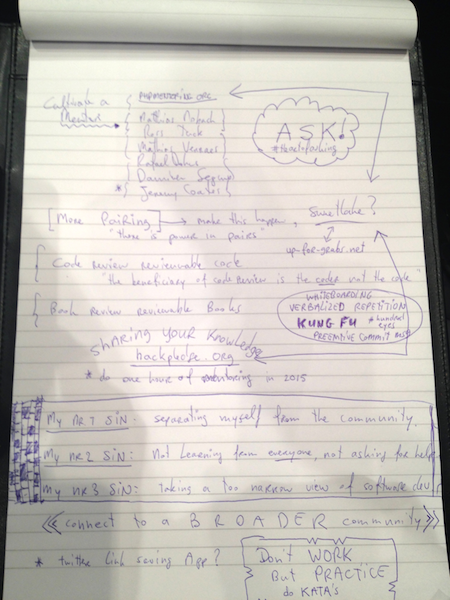 Cultivate a
Mentor
PHPMENTORING.ORG
Mathias
Ross Tuck
Mathias Verraes
Rafael Dohms
*
ASK!
[More Pairing] → make this happen,
"there is power in pairs"
up-for-grabs.net
Code Review reviewable code
"the beneficiary of code review is the coder not the code"
Book Review reviewable Books
WHITEBOARDING
VERBALIZED REPETITION
KUNG FU * hundred
eyes
PREEMPTIVE COMMIT
SHARING YOUR knowledge
* do one hour of mentoring in 2015
My nr 1 SiN: separating myself from the community.
My nr 2 SiN: Not Learning from everyone, not asking for help
My nr 3 SiN: Taking a too narrow view of software dev's
<< connect to a BROADER community >>
* twitter Link saving App?
Don't WORK
But PRACTICE
do KATA's